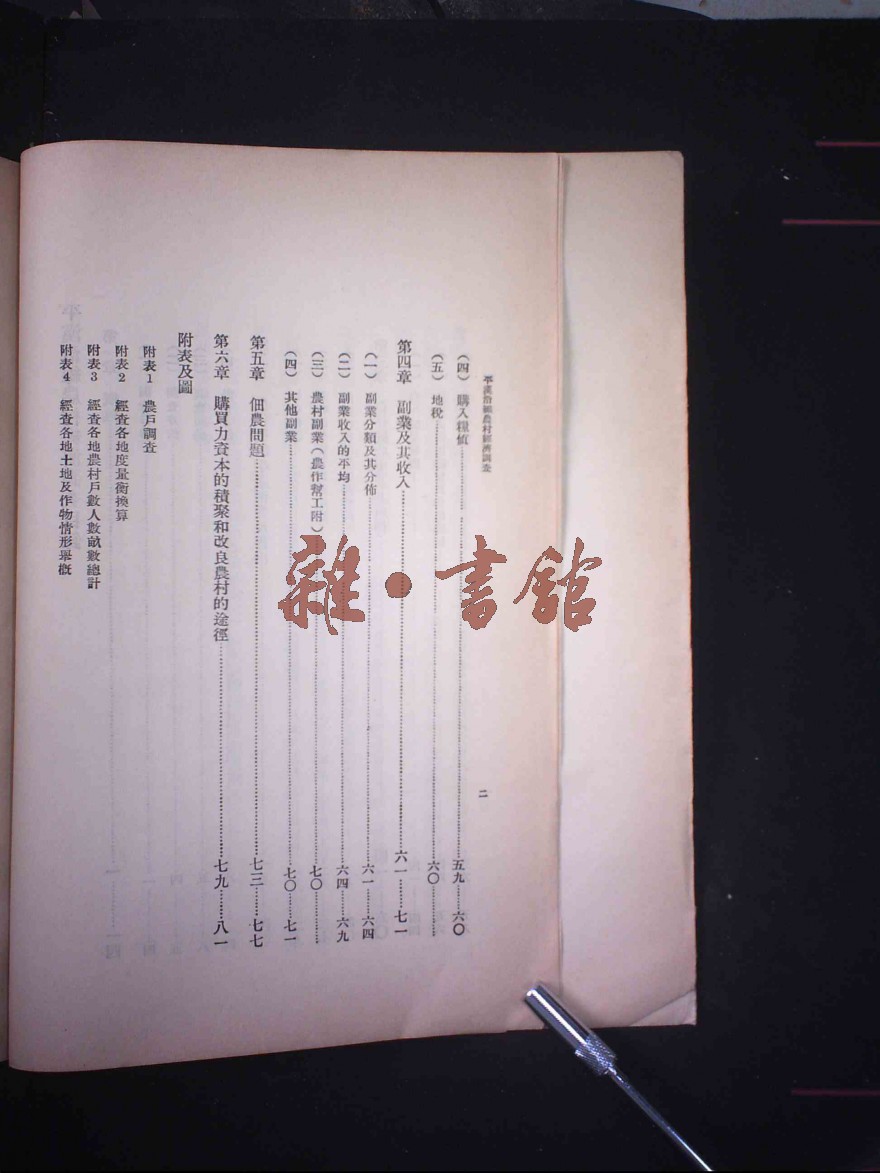 平漢沿線農村經濟調查
二
(四) 購入糧值……五九……六〇
(五) 地稅……六〇……
第四章 副業及其收入……六一……七一
(一) 副業分類及其分佈……六一……六四
(二) 副業收入的平均……六四……六九
(三) 農村副業(農作幫工附)……七〇……
(四) 其他副業……七〇……七一
第五章 佃農問題……七三……七七
第六章 購買力資本的積聚和改良農村的途徑……七九……八一
附表及圖
附表1 農戶調查
附表2 經查各地度量衡換算
附表3 經查各地農村戶數人數畝數總計
附表4 經查各地土地及作物情形舉概
雜·書館